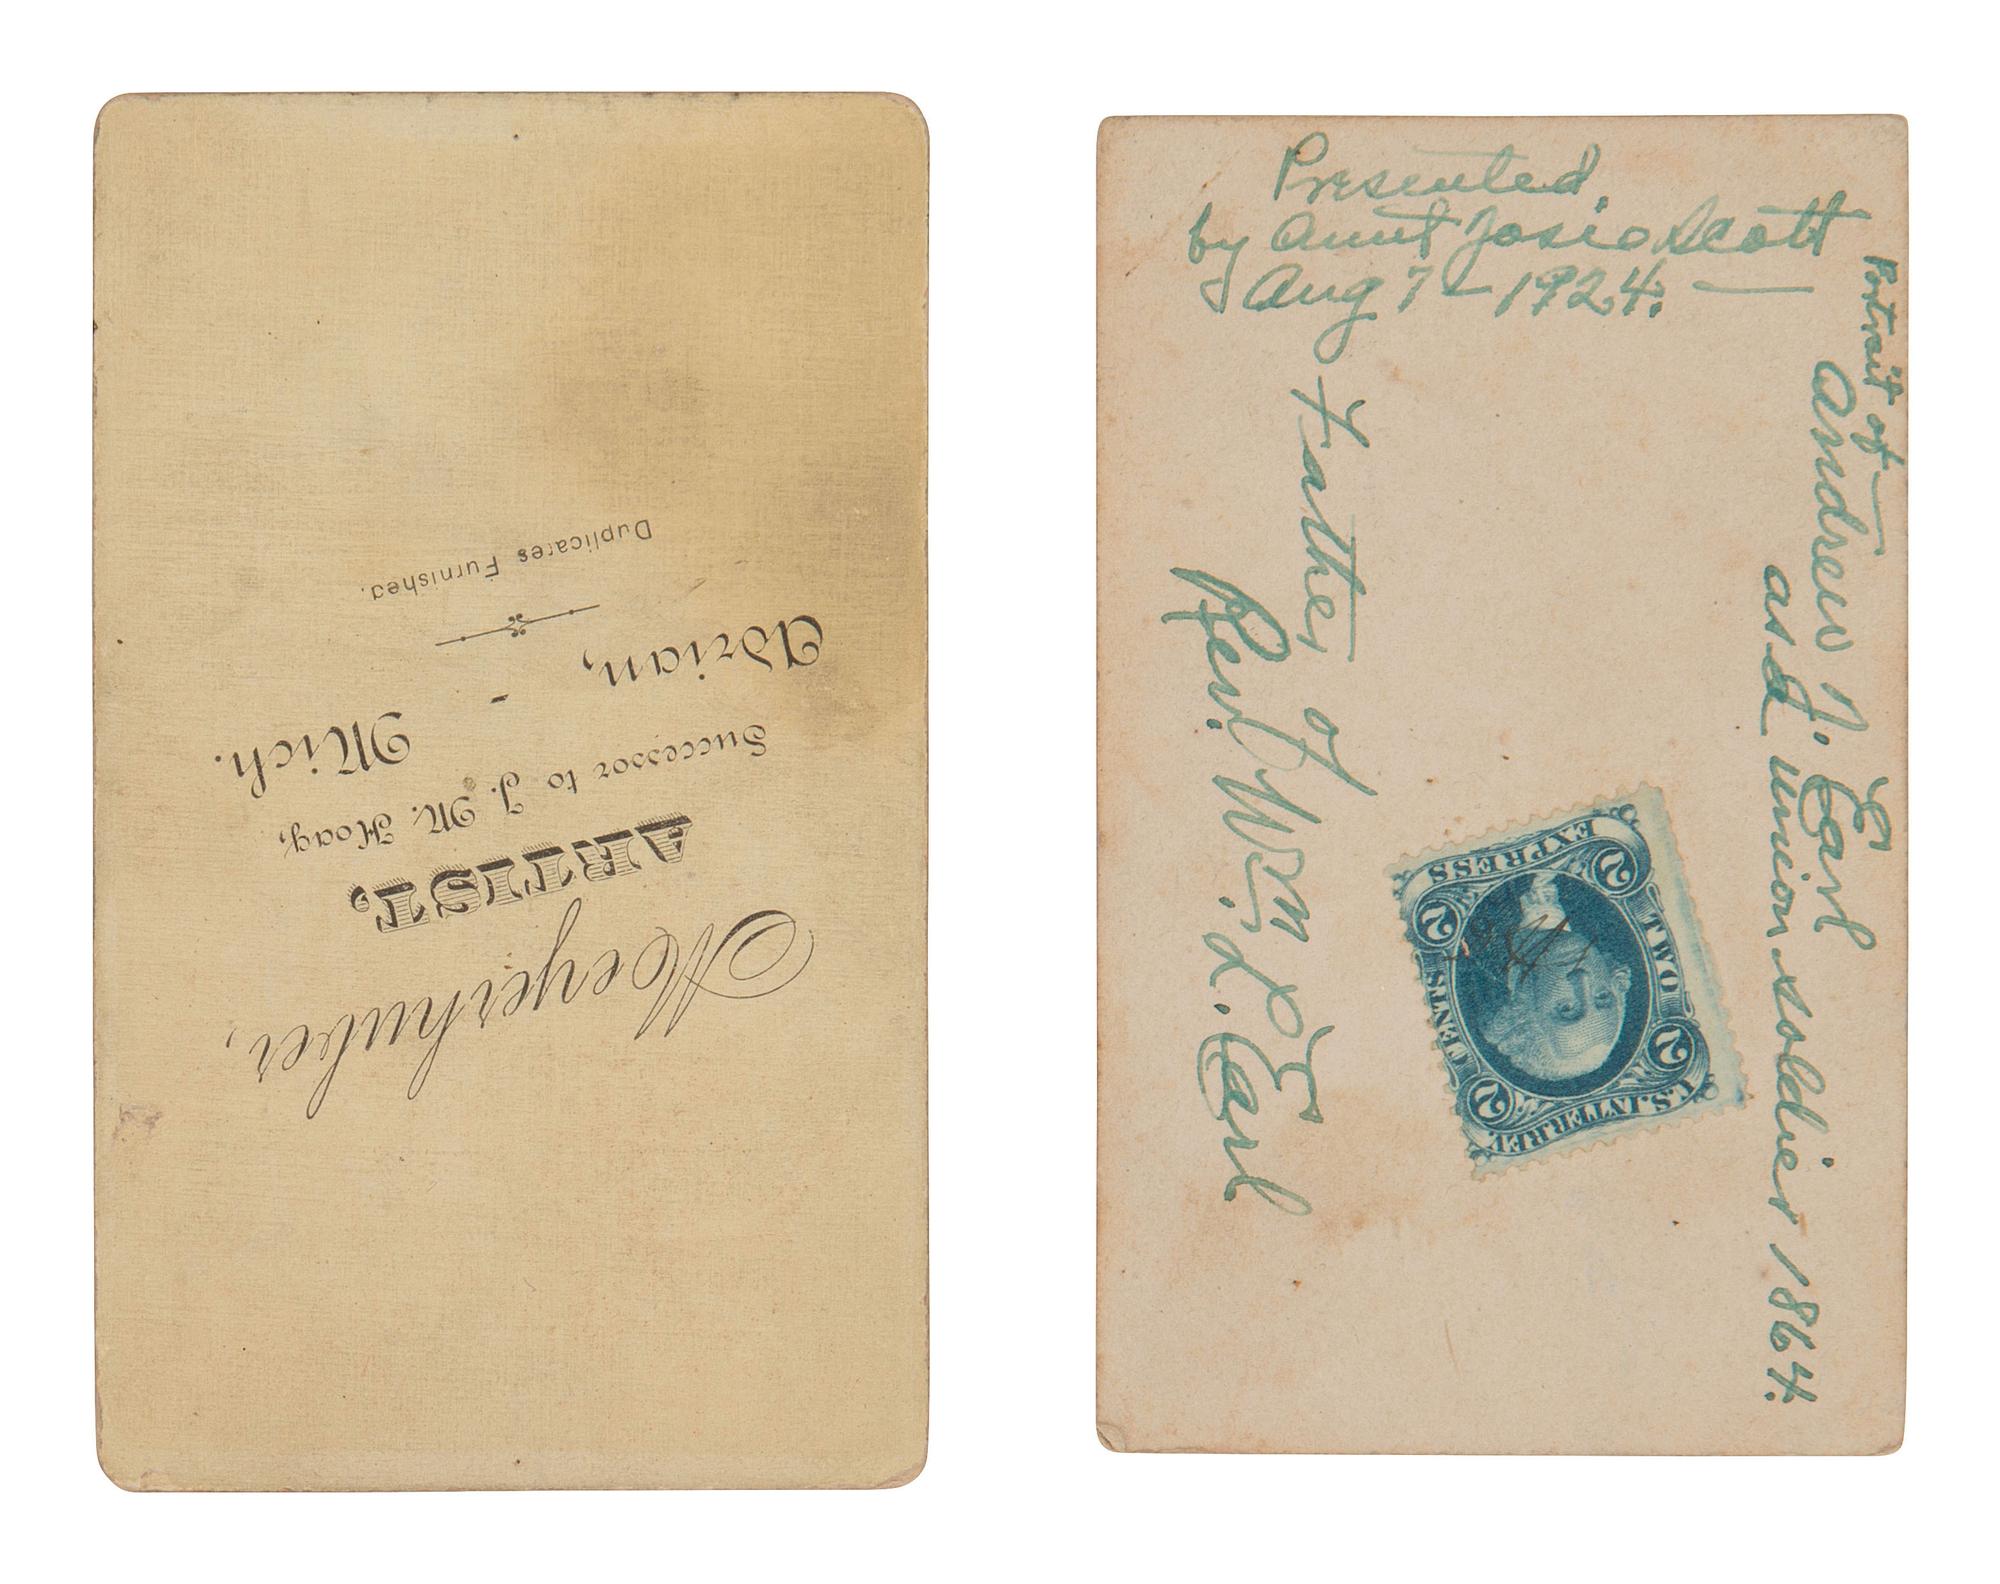 Moeyerhuber,
ARTIST,
Successor to J. M. Hoag,
Adrian, - Mich.
Duplicares Furnished.
Presented
by Aunt Josie Scott
Aug 7 - 1924. —
Portrait of —
Andrew J. Earl
as a union soldier 1864.
Father of
Rev. Wm L. Earl
EXPRESS
2 2
TWO CENTS
2 2
U.S. INTER. REV.